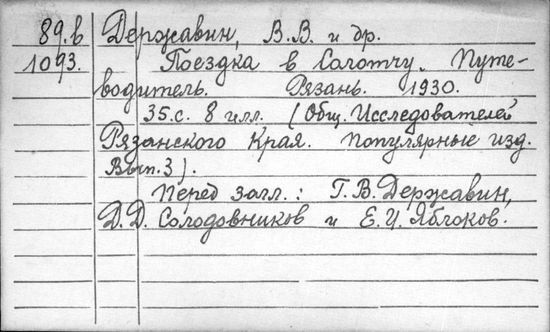 89.в Державин, В.В. и др.
1093. Поездка в Солотчу. Путе-
водитель. Рязань. 1930.
35.с. 8 илл. (Общ. Исследователей
Рязанского Края. Популярные изд.
Вып.3).
Перед загл.: Г.В.Державин,
Д.Д. Солодовников и Е.И. Яблоков.